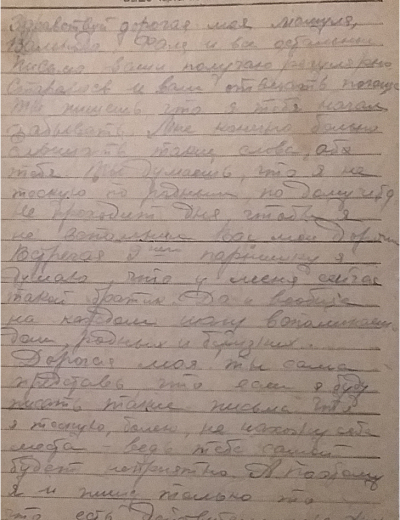 Здравствуй дорогая моя мамуля,
Валя и все остальные
Письма ваши получаю регулярно
Стараюсь и вам отвечать почаще
Ты пишешь что я тебя начал
забывать. Мне конечно больно
слышать такие слова от
тебя. Ты думаешь, что я не
тоскую по родным, по дому
Не проходит дня, чтобы я
не вспомнил вас мои дорогие
Встречая парнишку я
думаю, что у меня сейчас
такой братик. Да и вообще
на каждом шагу вспоминаешь
дом, родных и
Дорогая моя ты сама
представь что если я буду
писать такие письма что
я тоскую, болею, не нахожу себе
места - ведь тебе самой
будет неприятно. А поэтому
я и пишу только то
что есть